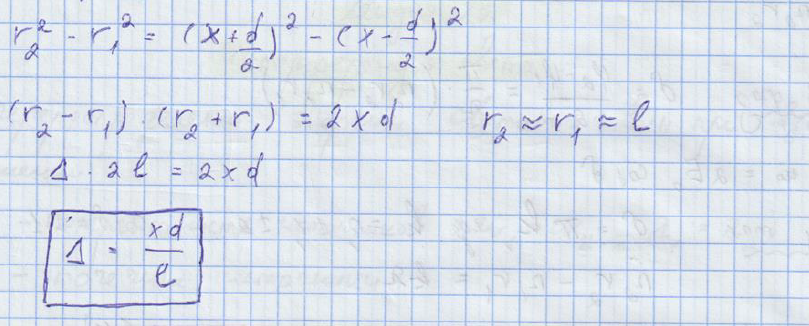 r₂² - r₁² = (x + d/2)² - (x - d/2)²
(r₂ - r₁) · (r₂ + r₁) = 2xd r₂ ≈ r₁ ≈ l
Δ · 2l = 2xd
Δ = xd/l